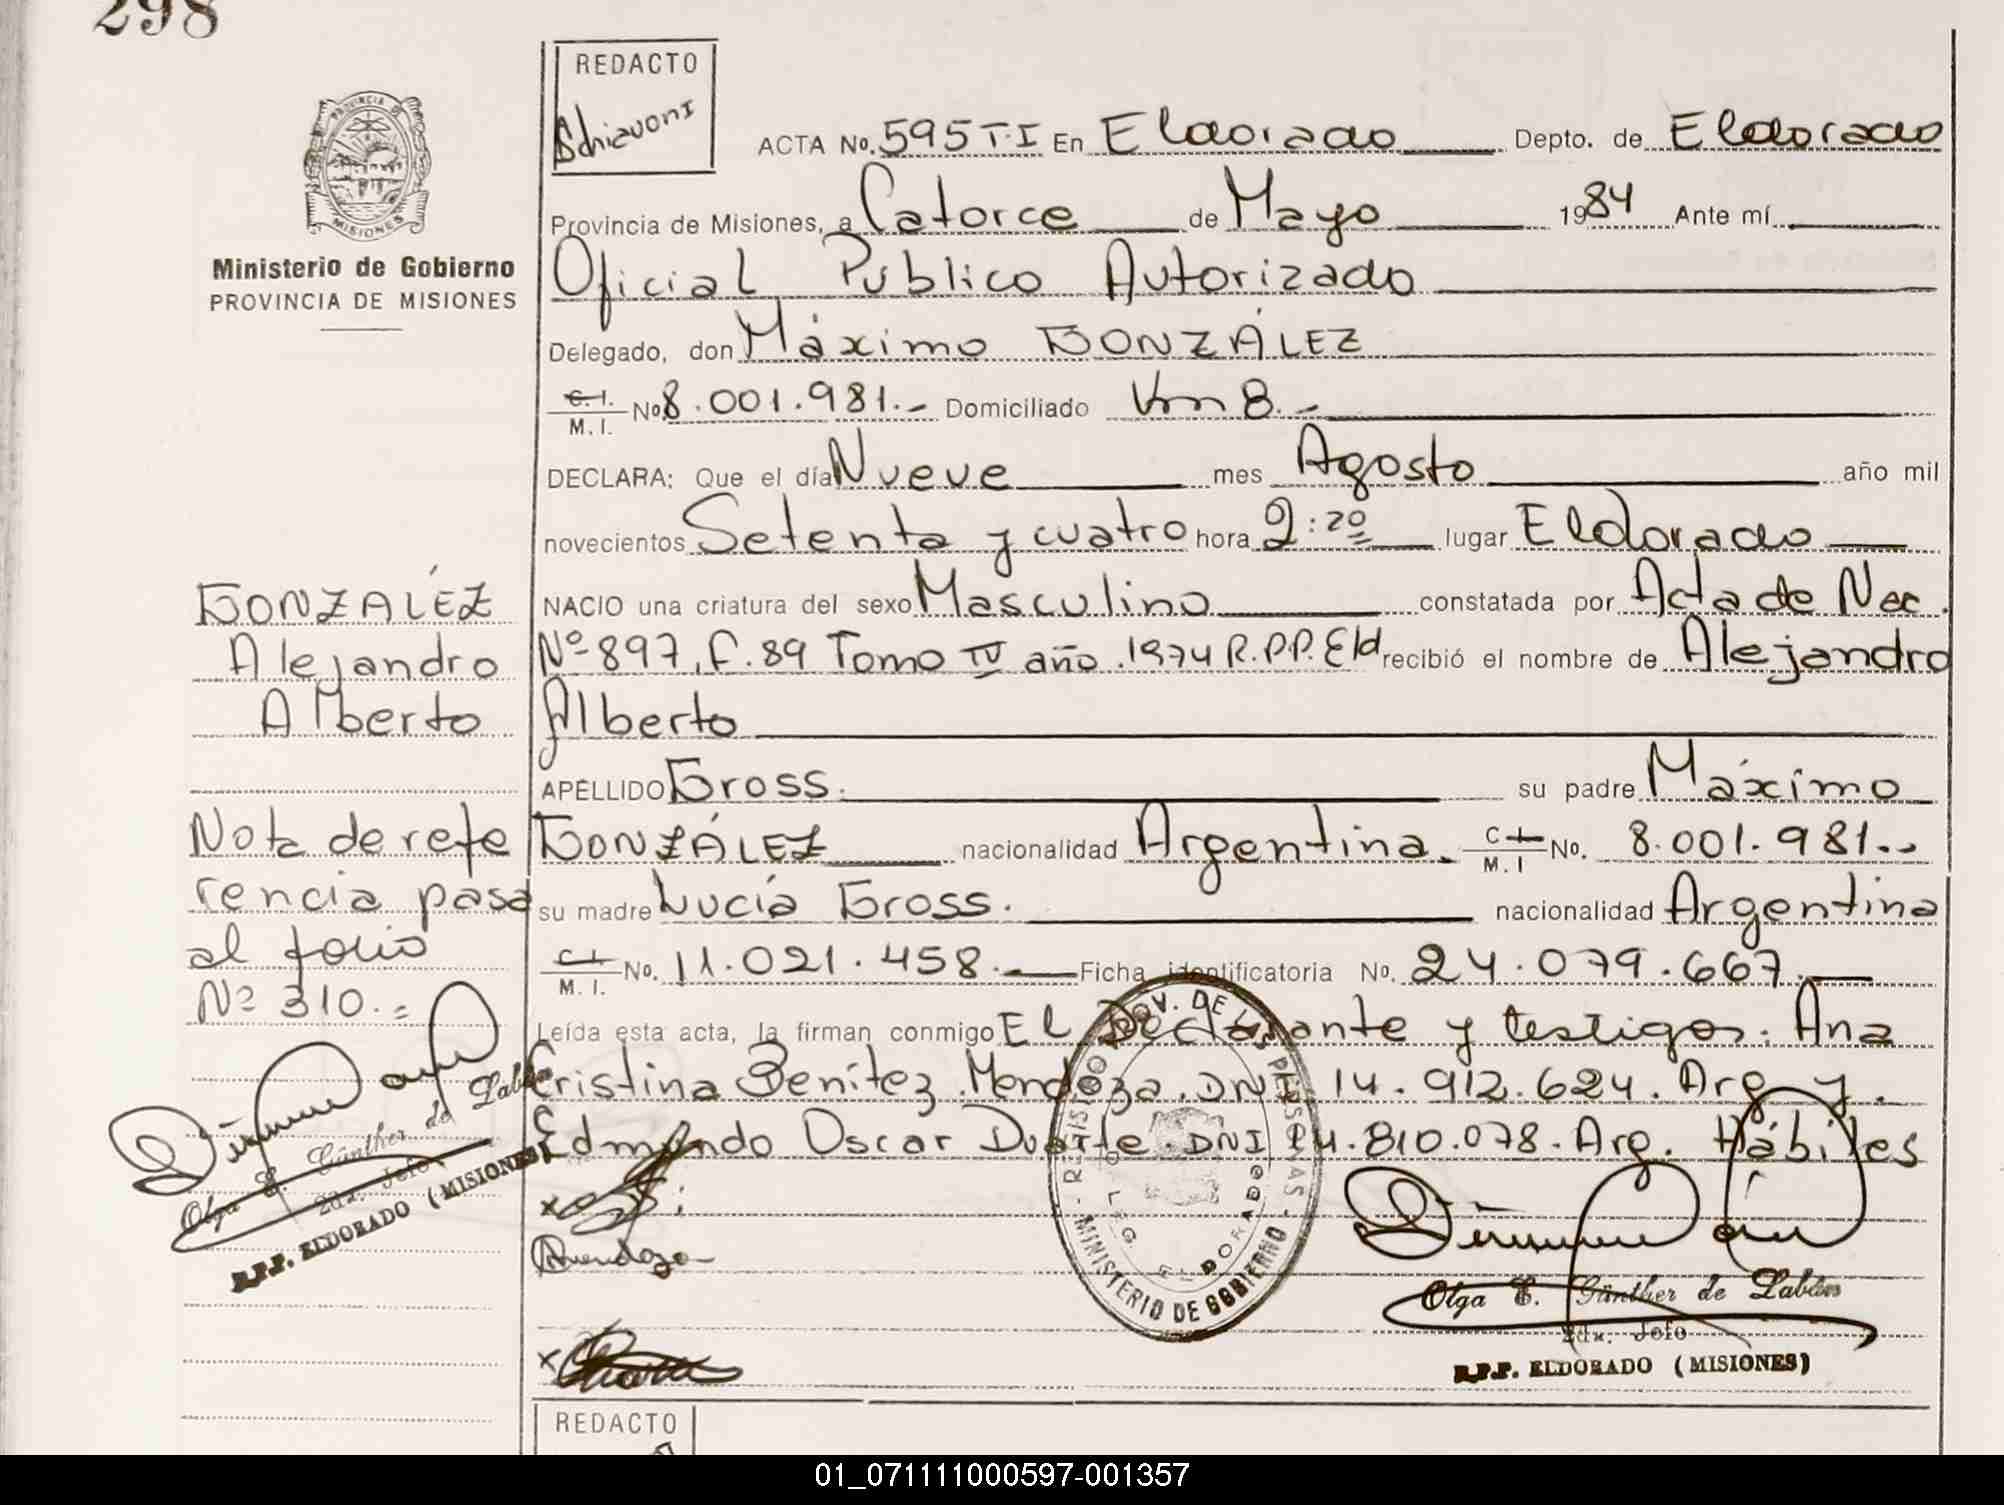 298
REDACTO
Schiavoni
ACTA No. 595 T·I En Eldorado Depto. de Eldorado
Provincia de Misiones, a Catorce de Mayo 1984 Ante mí
Oficial Público Autorizado
Delegado, don Máximo GONZÁLEZ
C.I. M.I. No 8.001.981.- Domiciliado Km 8.-
DECLARA: Que el día Nueve mes Agosto año mil
novecientos Setenta y cuatro hora 2:20 lugar Eldorado
NACIO una criatura del sexo Masculino constatada por Acta de Nac.
Nº 897, F. 89 Tomo IV año 1974 R.P.P. Eld recibió el nombre de Alejandro
Alberto
APELLIDO Gross. su padre Máximo
GONZÁLEZ nacionalidad Argentina. C I M. I No. 8.001.981.-
su madre Lucía Gross. nacionalidad Argentina
C I M. I. No. 11.021.458. Ficha identificatoria No. 24.079.667.
Leída esta acta, la firman conmigo El Declarante y testigos. Ana
Cristina Benítez Mendoza. DNI 14.912.624. Arg. y
Edmundo Oscar Duarte DNI 14.810.078. Arg. Hábiles
Mendoza
Olga E. Günther de Labán
2da. Jefe
R.P.P. ELDORADO (MISIONES)
PROV. DE LAS PERSONAS
MINISTERIO DE GOBIERNO
ELDORADO
Ministerio de Gobierno
PROVINCIA DE MISIONES
GONZALÉZ
Alejandro
Alberto
Nota de refe
rencia pasa
al folio
Nº 310.=
Olga E. Günther de Labán
2da. Jefe
R.P.P. ELDORADO (MISIONES)
REDACTO
01_071111000597-001357